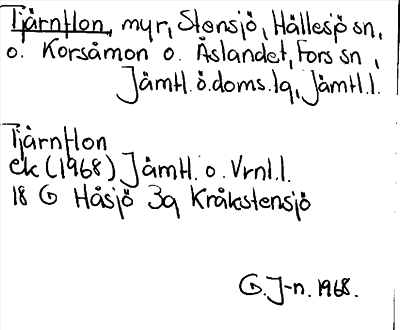 Tjärnflon, myr, Stensjö, Hällesjö sn,
o. Korsåmon o. Åslandet, Fors sn,
Jämtl. ö. doms. lg, Jämtl. l.
Tjärnflon
ek (1968) Jämtl. o. Vrnl. l.
18 G Håsjö 3g Kråkstensjö
G. J-n. 1968.